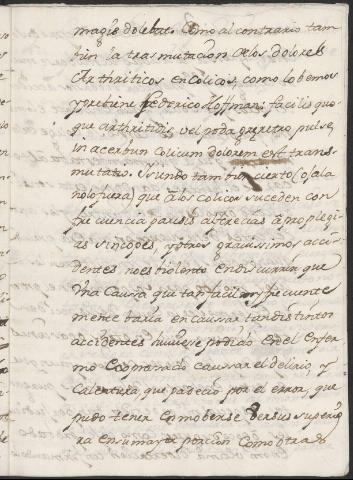 magis dolebat. Como al contrario tam
bien la trasmutacion de los dolores
Arthriticos en colicos, como lo bemos
y previene frederico Hoffman: facilis quo-
que arthritidis, vel podagræ retro pulsæ,
in acerbun colicum dolorem est trans-
mutatio. Siendo tambien cierto (ojala
no lo fuera) que à los colicos suceden con
frecuencia paresis astrecias apoplegi-
as sincopes, y otros gravissimos acci-
dentes no es violento en discurrir que
Una Causa que tan facil y frecuente
mente baria en causar tan distintos
accidentes hubiese podido en el enfer
mo Comparacio causar el delirio, y
Calentura que padeció por el error, que
pudo tener en moberse versus superio
ra en su mayor porcion como otras